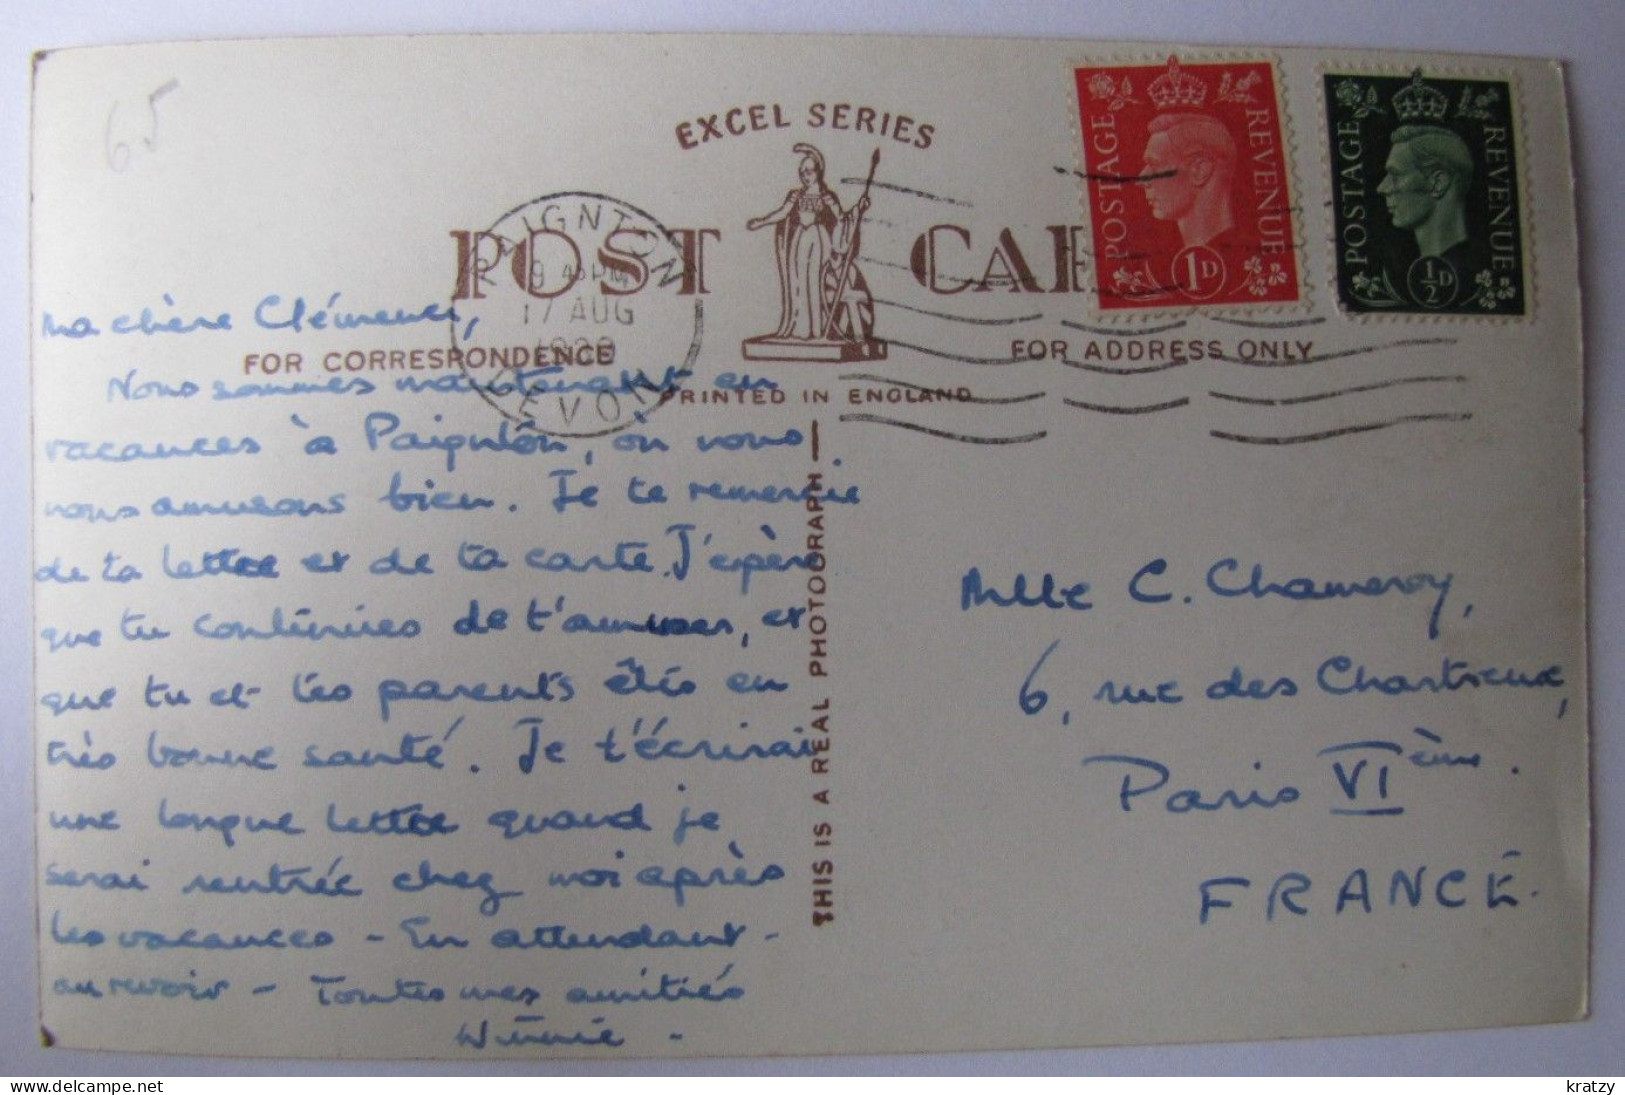 65
EXCEL SERIES
POST CAR
PAIGNTON
9 45 PM
17 AUG
DEVON
POSTAGE REVENUE
1D
POSTAGE REVENUE
½D
FOR CORRESPONDENCE
FOR ADDRESS ONLY
PRINTED IN ENGLAND
THIS IS A REAL PHOTOGRAPH
Ma chère Clémence,
Nous sommes maintenant en
vacances à Paignton, où nous
nous amusons bien. Je te remercie
de ta lettre et de ta carte. J'espère
que tu continues de t'amuser, et
que tu et tes parents êtes en
très bonne santé. Je t'écrirai
une longue lettre quand je
serai rentrée chez moi après
les vacances - En attendant -
au revoir - Toutes mes amitiés
Winnie -
Mlle C. Chameroy,
6, rue des Chartreux,
Paris VIème.
FRANCE.
kratzy